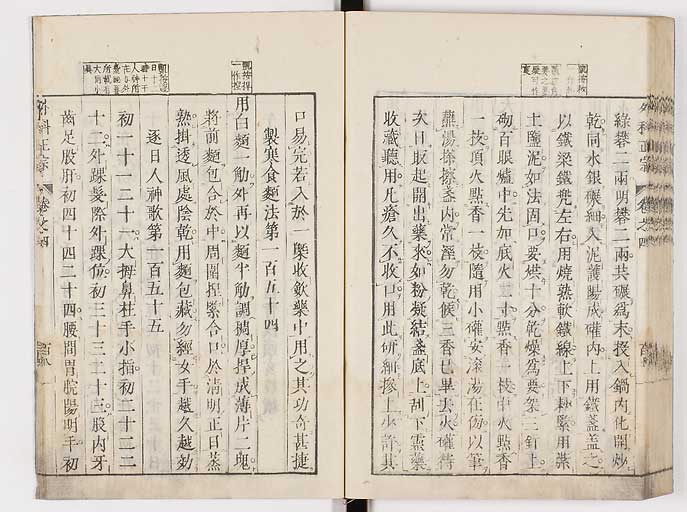 綠礬二兩明礬二兩共碾爲末投入鍋內化開炒
乾同水銀碾細入泥護腸成礶內上用鐵盞盖之
以鐵梁鐵兠左右用燒熟軟鐵線上下紮緊用紫
土鹽泥如法周口要烘十分乾燥爲要架三釘上
砌百眼爐中先加底火二寸點香一枝中火點香
一枝頂火點香一枝隨用小礶安滾湯在傍以筆
蘸湯搽擦盞內常溼勿乾候三香巳畢去火礶待
次日取起開出藥來如粉凝結盞底上刮下靈藥
收藏聽用凡瘡久不收口用此研細摻上少許其
口易完若入於一槩收歛藥中用之其功奇甚捷
製寒食麵法第一百五十四
用白麵一觔外再以麵半觔調稠厚捍成薄片二塊
將前麵包合於中周圍捏緊合口於清明正日蒸
熟掛透風處陰乾用麵包藏勿經女手越久越効
逐日人神歌第一百五十五
初一十一二十一大拇鼻柱手小指初二十二二
十二外踝髮際外踝位初三十三二十三股內牙
齒足股肝初四十四二十四腰間胃脘陽明手初
外科正宗 卷之四